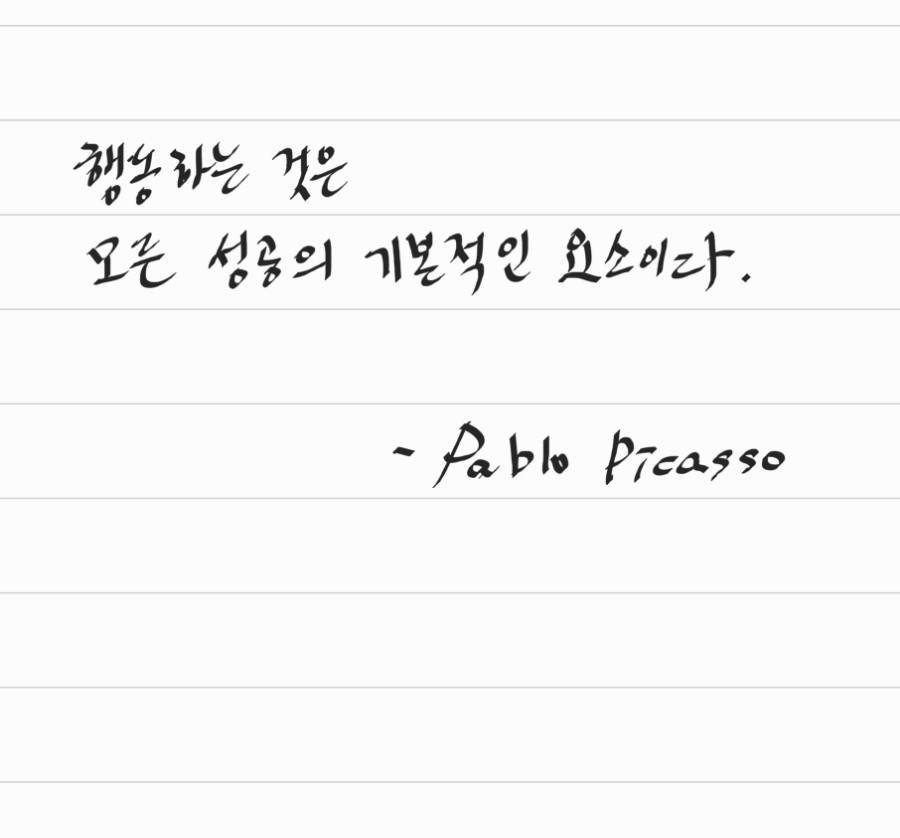 행동하는 것은
모든 성공의 기본적인 요소이다.
- Pablo Picasso